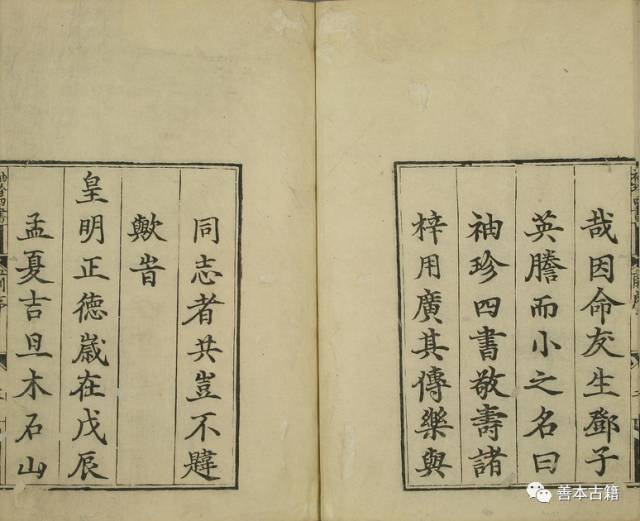 哉因命友生鄧子
英謄而小之名曰
袖珍四書敬壽諸
梓用廣其傳樂與
同志者共豈不韙
歟旹
皇明正德歲在戊辰
孟夏吉旦木石山
善本古籍